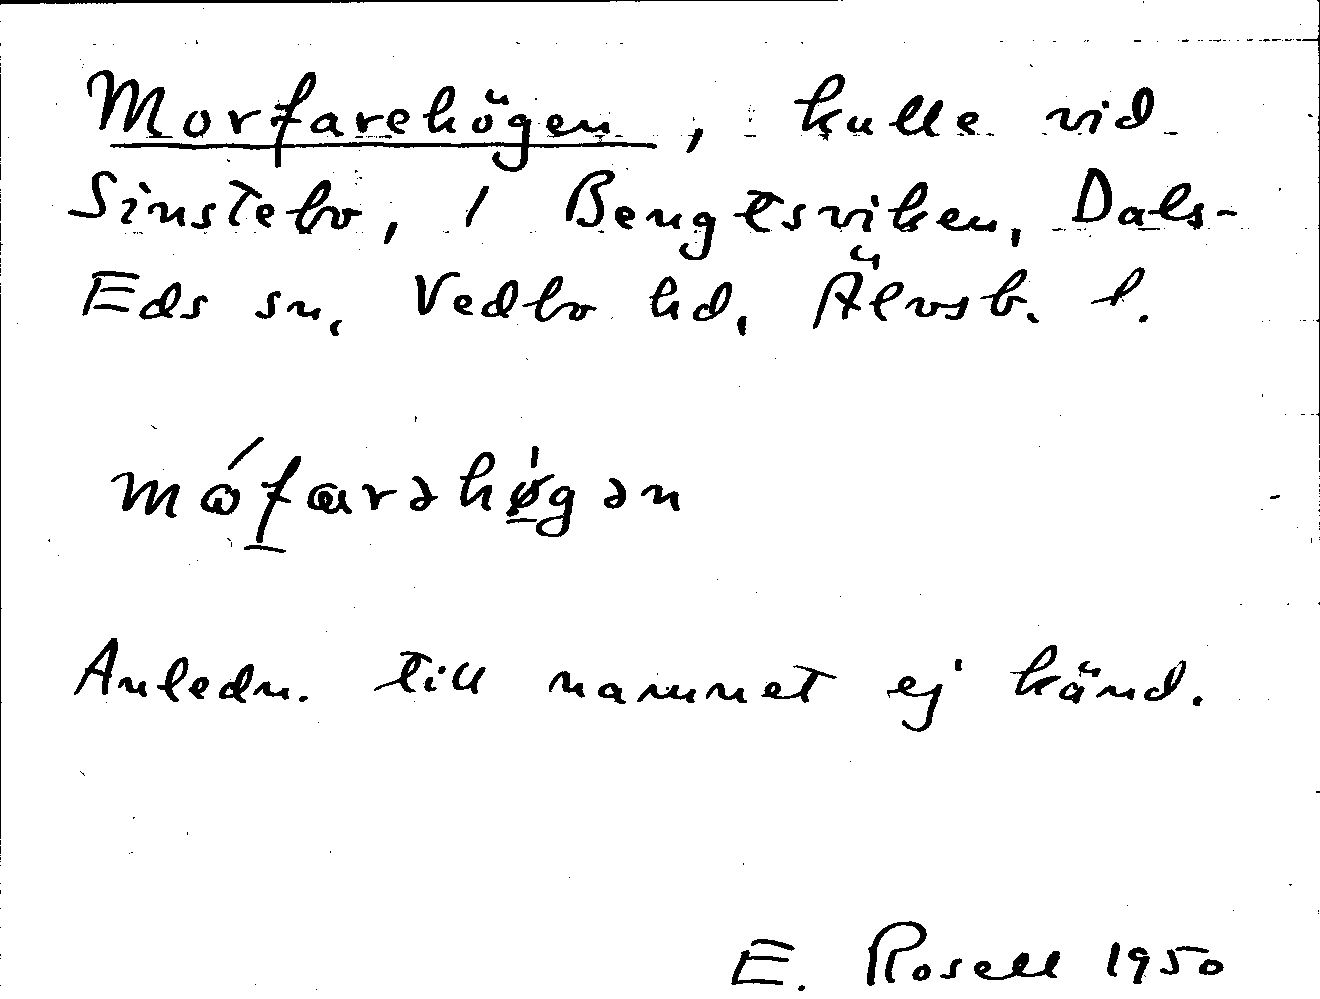 Morfarehögen, kulle vid
Sinstebo, / Bengtsviken, Dals-
Eds sn, Vedbo hd, Älvsb. l.
Anledn. till namnet ej känd.
E. Rosell 1950